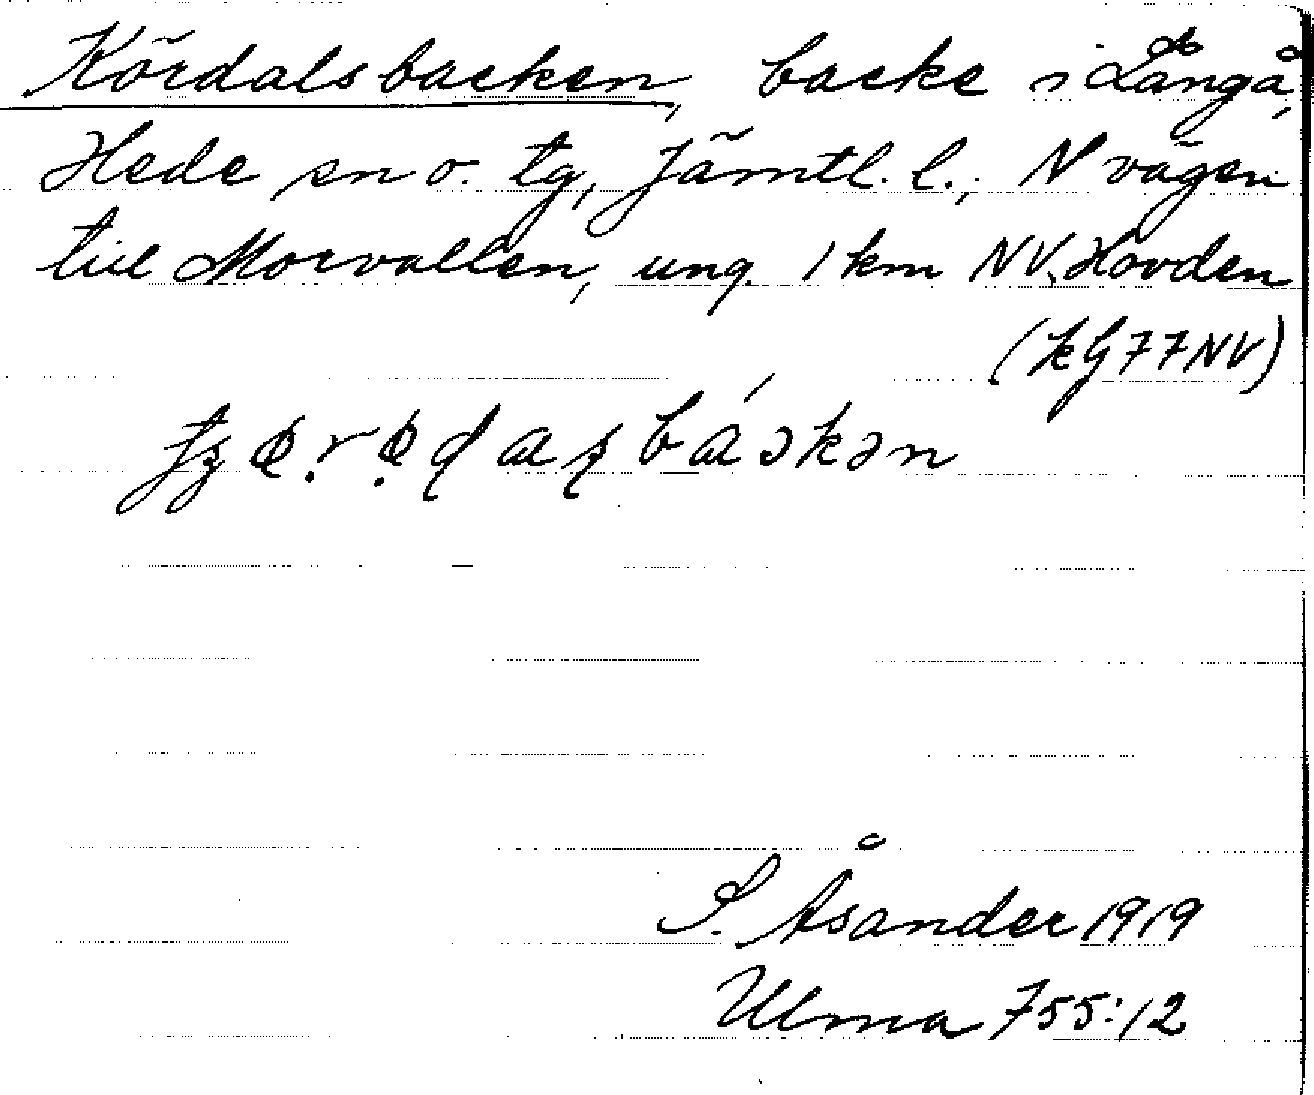 Kördalsbacken, backe i Långå,
Hede sn o. tg, Jämtl. l., N vägen
till Morvallen, ung. 1 km NV. Hovden
(kG77NV)
S. Åsander 1919
Ulma 755:12